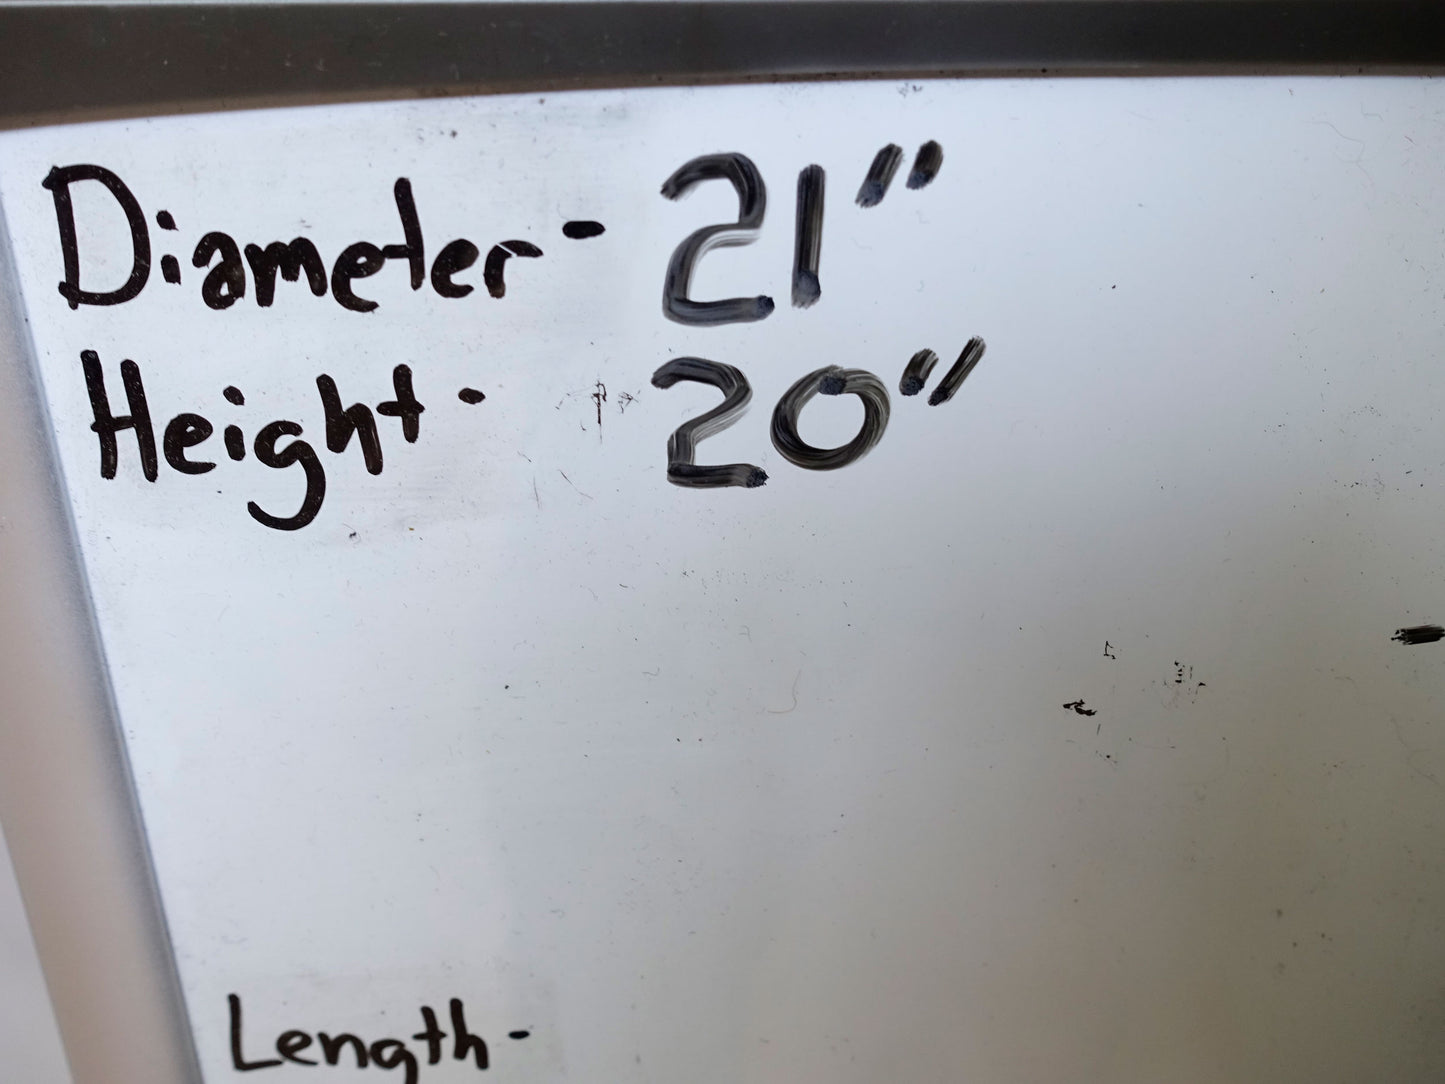 Diameter - 21"
Height - 20"
Length -